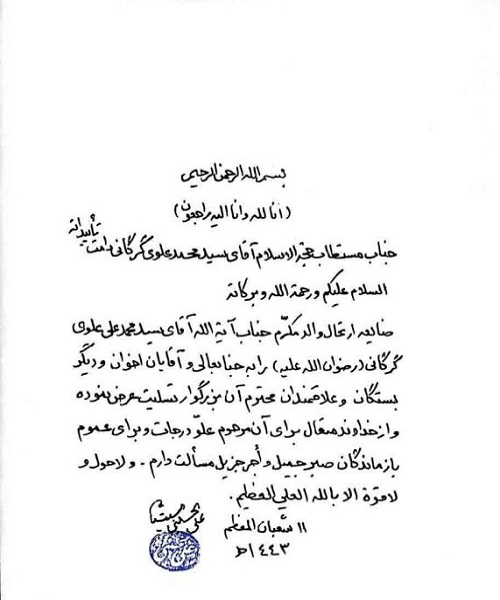 بسم الله الرحمن الرحیم
(انا لله وانا الیه راجعون)
جناب مستطاب حجة الاسلام آقای سید محمد علوی گرگانی دامت تأییداته
السلام علیکم ورحمة الله وبرکاته
ضایعه ارتحال والد مکرّم جناب آیة الله آقای سید محمد علی علوی
گرگانی (رضوان الله علیه) را به جنابعالی و آقایان اخوان و دیگر
بستگان و علاقمندان محترم آن بزرگوار تسلیت عرض نموده
و از خداوند متعال برای آن مرحوم علوّ درجات و برای عموم
بازماندگان صبر جمیل و أجر جزیل مسألت دارم . و لا حول و
لا قوة الا بالله العلي العظیم .
۱۱ شعبان المعظم
۱٤٤۳ ه
علی الحسینی